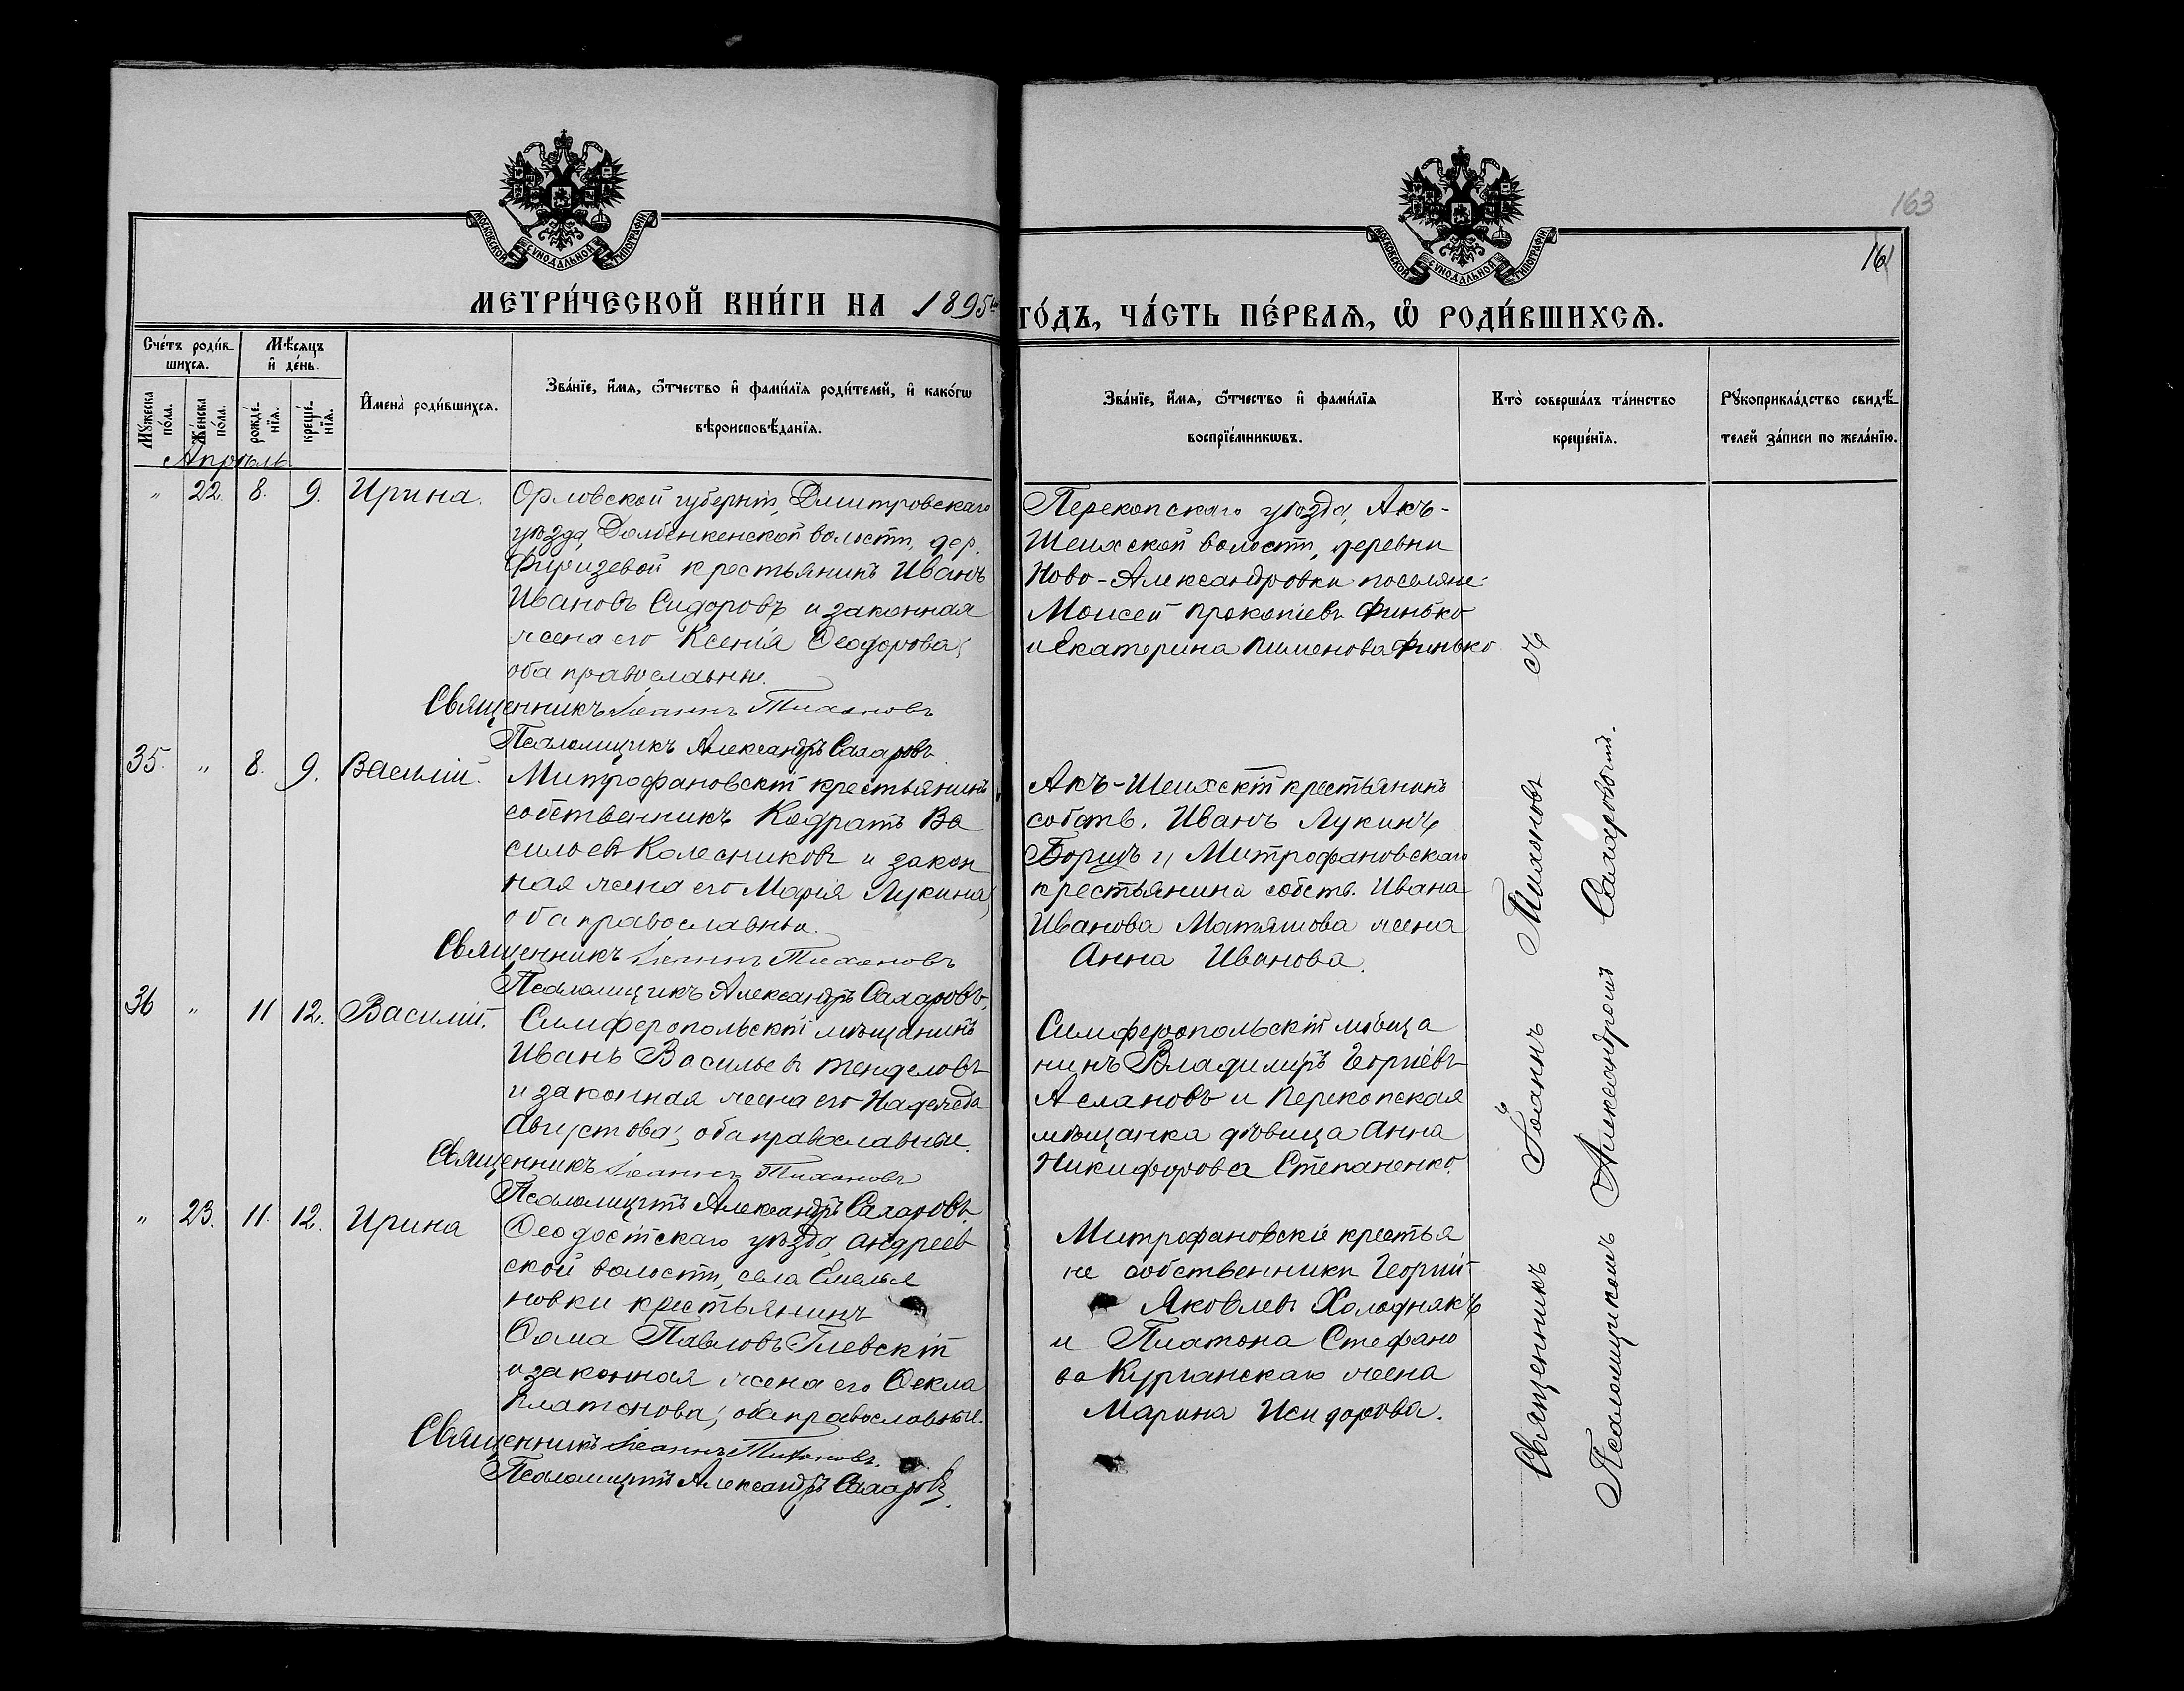 163
161
МОСКОВСКОЙ СѴНОДАЛЬНОЙ ТИПОГРАФІИ
МОСКОВСКОЙ СѴНОДАЛЬНОЙ ТИПОГРАФІИ
МЕТРИ́ЧЕСКОЙ КНИ́ГИ НА 1895
ГО́ДЪ, ЧА́СТЬ ПЕ́РВАѦ, Ѡ҆ РОДИ́ВШИХСѦ.
Сче́тъ роди́в-
шихсѧ.
Мѣ́сяцъ
и҆ де́нь.
Мꙋ́жеска по́ла.
Же́нска по́ла.
рожде́-нїѧ.
креще́-нїѧ.
И҆мена̀ роди́вшихсѧ.
Зва́нїе, и҆́мѧ, ѻ҆́тчество и҆ фами́лїѧ роди́телей, и҆ како́гѡ
вѣроисповѣ́данїѧ.
Зва́нїе, и҆́мѧ, ѻ҆́тчество и҆ фами́лїѧ
воспрїе́мникѡвъ.
Кто̀ соверша́лъ та́инство
креще́нїѧ.
Рꙋкоприкла́дство свидѣ́-
телей за́писи по жела́нїю.
Апрѣль
" 22. 8. 9. Ирина.
Орловской губерніи, Дмитровскаго
уѣзда, Долбенкенской волости, дер.
крестьянинъ Иванъ
Ивановъ Сидоровъ и законная
жена его Ксенія Ѳеодорова,
оба православные.
Священникъ Іоаннъ Тихоновъ
Псаломщикъ Александръ Сахаровъ
Перекопскаго уѣзда, Акъ-
Шеихской волости, деревни
Ново-Александровки поселяне:
Моисей Прокопіевъ Финько
и Екатерина Пименова Финько
35. " 8. 9. Василій.
Митрофановскій крестьянинъ
собственникъ Кодратъ Ва
сильевъ Колесниковъ и закон
ная жена его Марія Лукина,
оба православны.
Священникъ Іоаннъ Тихоновъ
Псаломщикъ Александръ Сахаровъ.
Акъ-Шеихскій крестьянинъ
собств. Иванъ Лукинъ
и Митрофановскаго
крестьянина собств. Ивана
Иванова Матяшова жена
Анна Иванова.
36 " 11 12. Василій.
Симферопольскій мѣщанинъ
Иванъ Васильевъ Тенделовъ
и законная жена его Надежда
Августова, оба православные.
Священникъ Іоаннъ Тихоновъ
Псаломщикъ Александръ Сахаровъ.
Симферопольскій мѣща
нинъ Владиміръ Георгіевъ
Аслановъ и Перекопская
мѣщанка дѣвица Анна
Никифорова Степаненко.
" 23. 11. 12. Ирина
Ѳеодосійскаго уѣзда, Андреев
ской волости, села Емелья
новки крестьянинъ
Ѳома Павловъ Глевскій
и законная жена его Ѳекла
Платонова, оба православные.
Священникъ Іоаннъ Тихоновъ.
Псаломщикъ Александръ Сахаровъ.
Митрофановскіе крестья
не собственники Георгій
Яковлевъ Холоднякъ
и Платона Стефано
ва Курганскаго жена
Марина Исидорова.
Священникъ Іоаннъ Тихоновъ съ
Псаломщикомъ Александромъ Сахаровымъ.